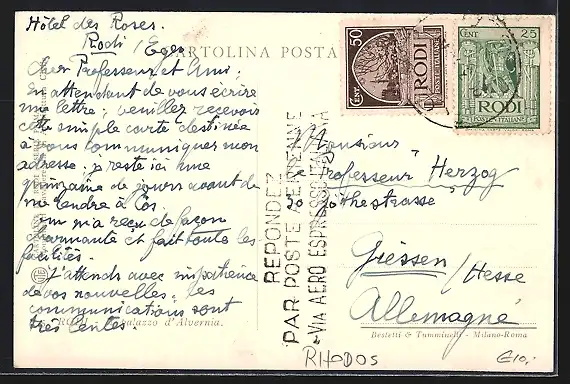 Hôtel des Roses.
Rodi / Egeo
CARTOLINA POSTA
Cher Professeur et Ami,
en attendant de vous écrire
une lettre, veuillez recevoir
cette simple carte destinée
à vous communiquer mon
adresse. je reste ici une
quinzaine de jours avant de
me rendre à Cos.
On m'a reçu de façon
charmante et fait toute les
facilités.
J'attends avec impatience
de vos nouvelles; les
communications sont
très lentes.
RODI - Palazzo d'Alvernia.
REPONDEZ
PAR POSTE AERIENNE
VIA AERO ESPRESSO ITALIANA
50
CENT
RODI
POSTE ITALIANE
CENT 25
RODI
POSTE ITALIANE
Monsieur
Professeur Herzog
30 Göthestrasse
Giessen / Hesse
Allemagne
Bestetti & Tumminelli - Milano-Roma
RHODOS
€10,-